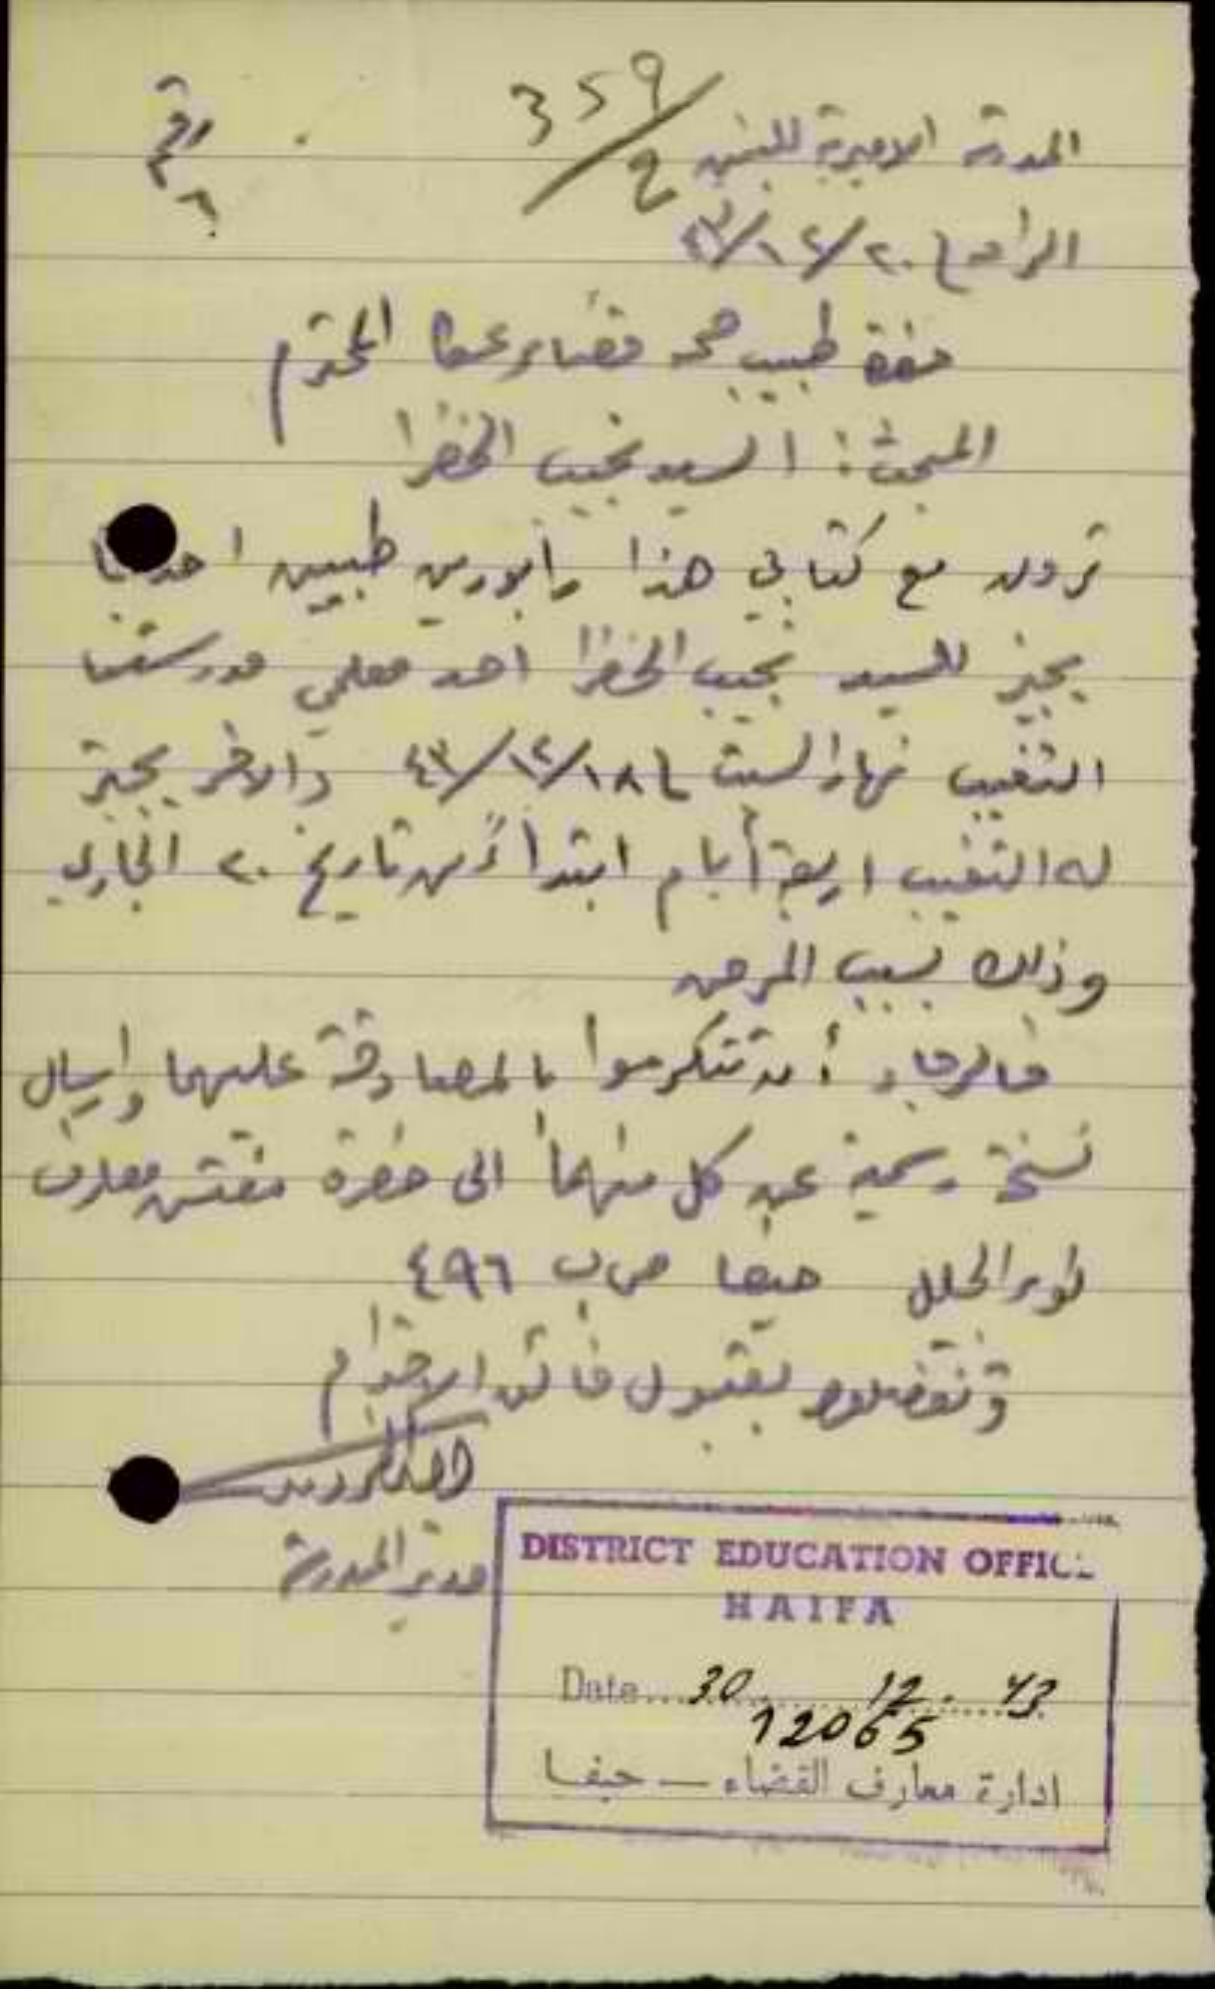 359/2
رقم
المدرسة الاميرية للبنين
٤٣/١٢/٢٠
حضرة طبيب صحة قضاء عكا المحترم
المبحث: السيد نجيب الخضرا
ترون مع كتابي هذا رابورين طبيين احدهما
يجيز للسيد نجيب الخضرا احد معلمي مدرستنا
التغيب نهار السبت ٤٣/١٢/١٨ والاخر يجيز
له التغيب اربعة أيام ابتداءً من تاريخ ٢٠ الجاري
وذلك بسبب المرض
فالرجاء أن تتكرموا بالمصادقة عليهما وارسال
نسخة رسمية عن كل منهما الى حضرة مفتش معارف
لواء الجليل حيفا ص ب ٤٩٦
وتفضلوا بقبول فائق الاحترام
مدير المدرسة
DISTRICT EDUCATION OFFICE
HAIFA
Date 30 12. 43
12065
ادارة معارف القضاء — حيفا